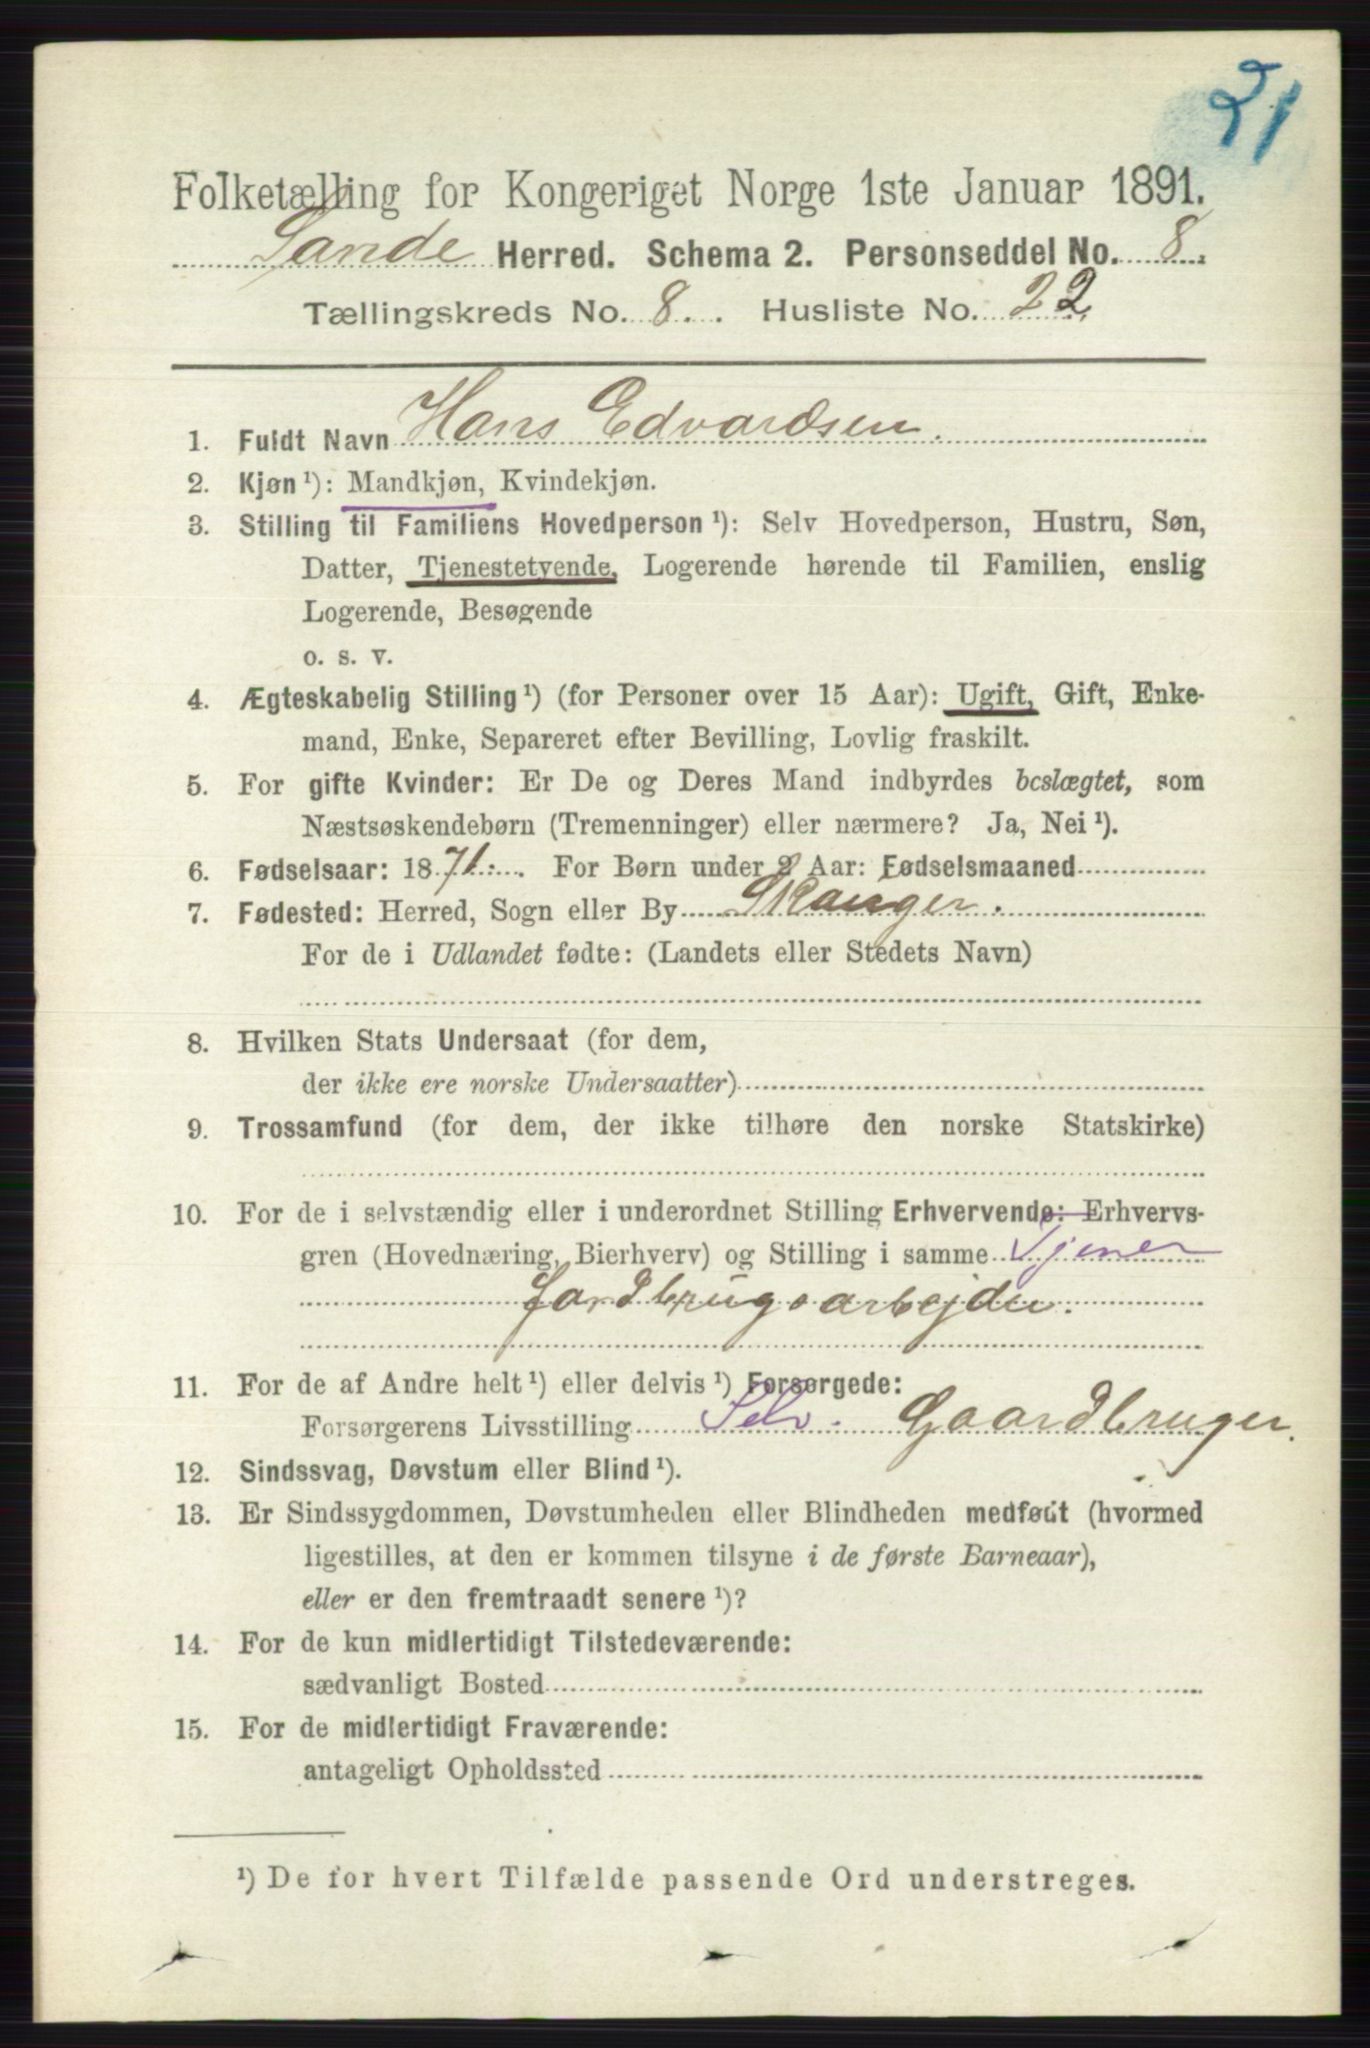 21
Folketælling for Kongeriget Norge 1ste Januar 1891.
Sande Herred. Schema 2. Personseddel No. 8.
Tællingskreds No. 8. Husliste No. 22
1. Fuldt Navn Hans Edvardsen.
2. Kjøn¹): Mandkjøn, Kvindekjøn.
3. Stilling til Familiens Hovedperson¹): Selv Hovedperson, Hustru, Søn,
Datter, Tjenestetyende, Logerende hørende til Familien, enslig
Logerende, Besøgende
o. s. v.
4. Ægteskabelig Stilling¹) (for Personer over 15 Aar): Ugift, Gift, Enke-
mand, Enke, Separeret efter Bevilling, Lovlig fraskilt.
5. For gifte Kvinder: Er De og Deres Mand indbyrdes beslægtet, som
Næstsøskendebørn (Tremenninger) eller nærmere? Ja, Nei¹).
6. Fødselsaar: 1871. For Børn under 2 Aar: Fødselsmaaned
7. Fødested: Herred, Sogn eller By Skauger.
For de i Udlandet fødte: (Landets eller Stedets Navn)
8. Hvilken Stats Undersaat (for dem,
der ikke ere norske Undersaatter)
9. Trossamfund (for dem, der ikke tilhøre den norske Statskirke)
10. For de i selvstændig eller i underordnet Stilling Erhvervende: Erhvervs-
gren (Hovednæring, Bierhverv) og Stilling i samme Tjener
Jordbrugsarbejder.
11. For de af Andre helt¹) eller delvis¹) Forsørgede:
Forsørgerens Livsstilling Selv. Gaardbruger.
12. Sindssvag, Døvstum eller Blind¹).
13. Er Sindssygdommen, Døvstumheden eller Blindheden medfødt (hvormed
ligestilles, at den er kommen tilsyne i de første Barneaar),
eller er den fremtraadt senere¹)?
14. For de kun midlertidigt Tilstedeværende:
sædvanligt Bosted
15. For de midlertidigt Fraværende:
antageligt Opholdssted
¹) De for hvert Tilfælde passende Ord understreges.